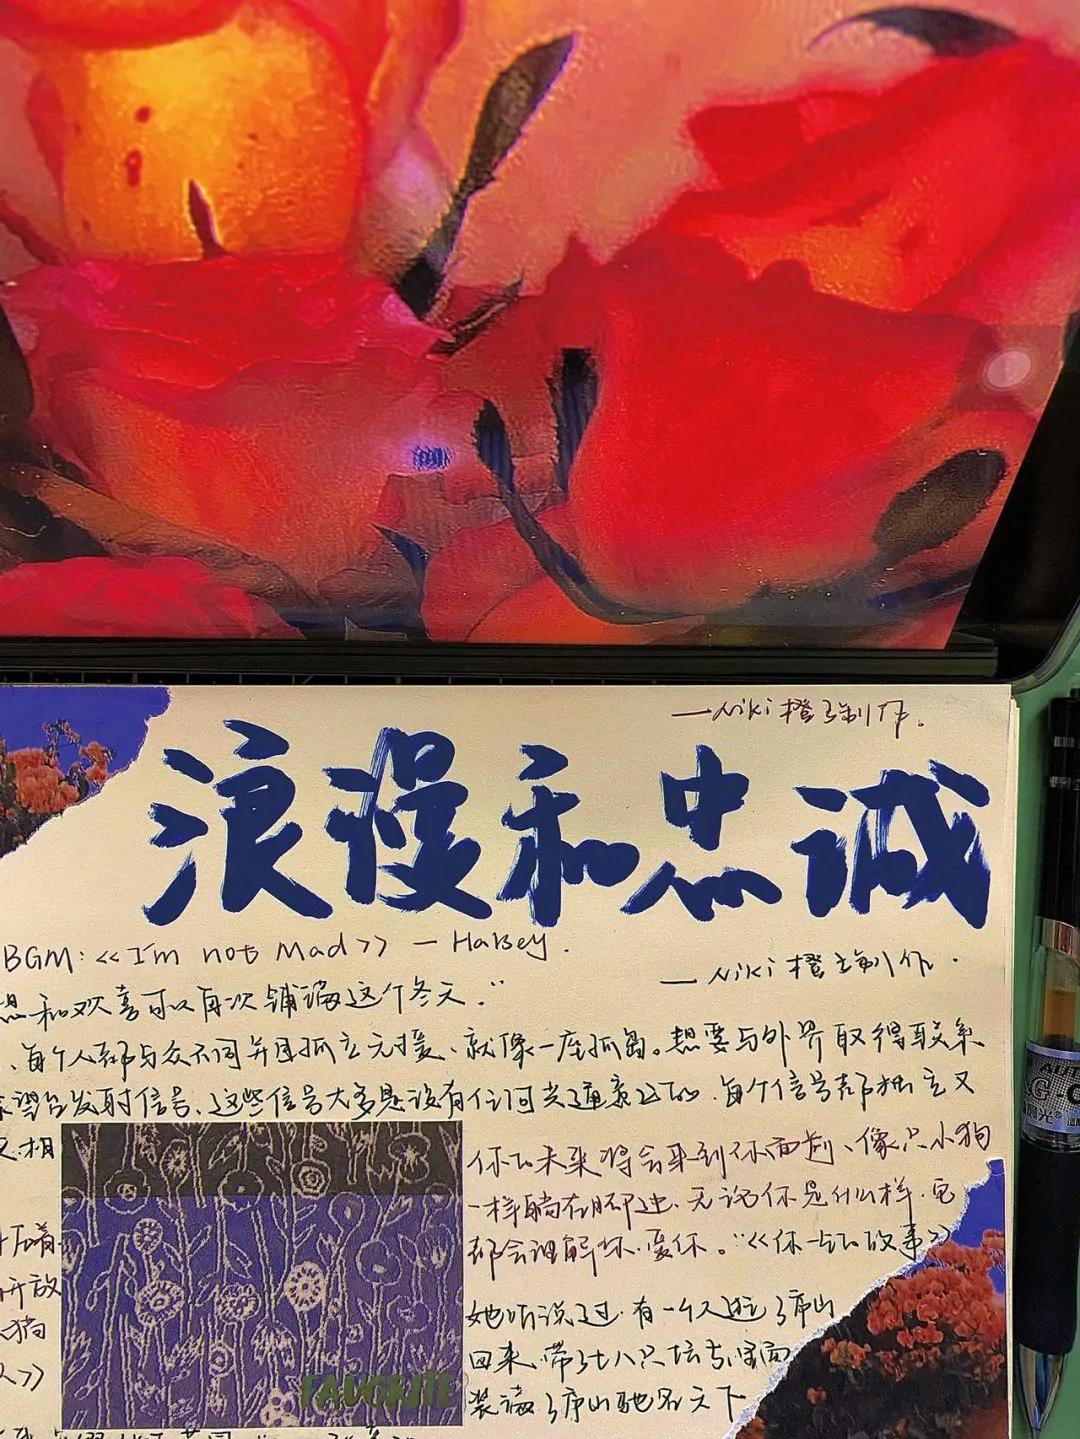 —Niki橙子制作.
浪漫和忠诚
BGM:《I'm not Mad》— Halsey.
—Niki橙子制作.
思和欢喜可以再次铺满这个冬天."
、每个人都与众不同并且孤立无援、就像一座孤岛。想要与外界取得联系
发射信号、这些信号大多是没有任何共通意义的、每个信号都独立又
又相
你的未来将会来到你面前、像只小狗
一样躺在脚边、无论你是什么样、它
都会理解你、爱你。"《你一生的故事》
着
开放
她听说过、有一个人逛了庐山
回来、带了七八只坛子、里面
装满了庐山驰名天下
FAVORITE
AUTO